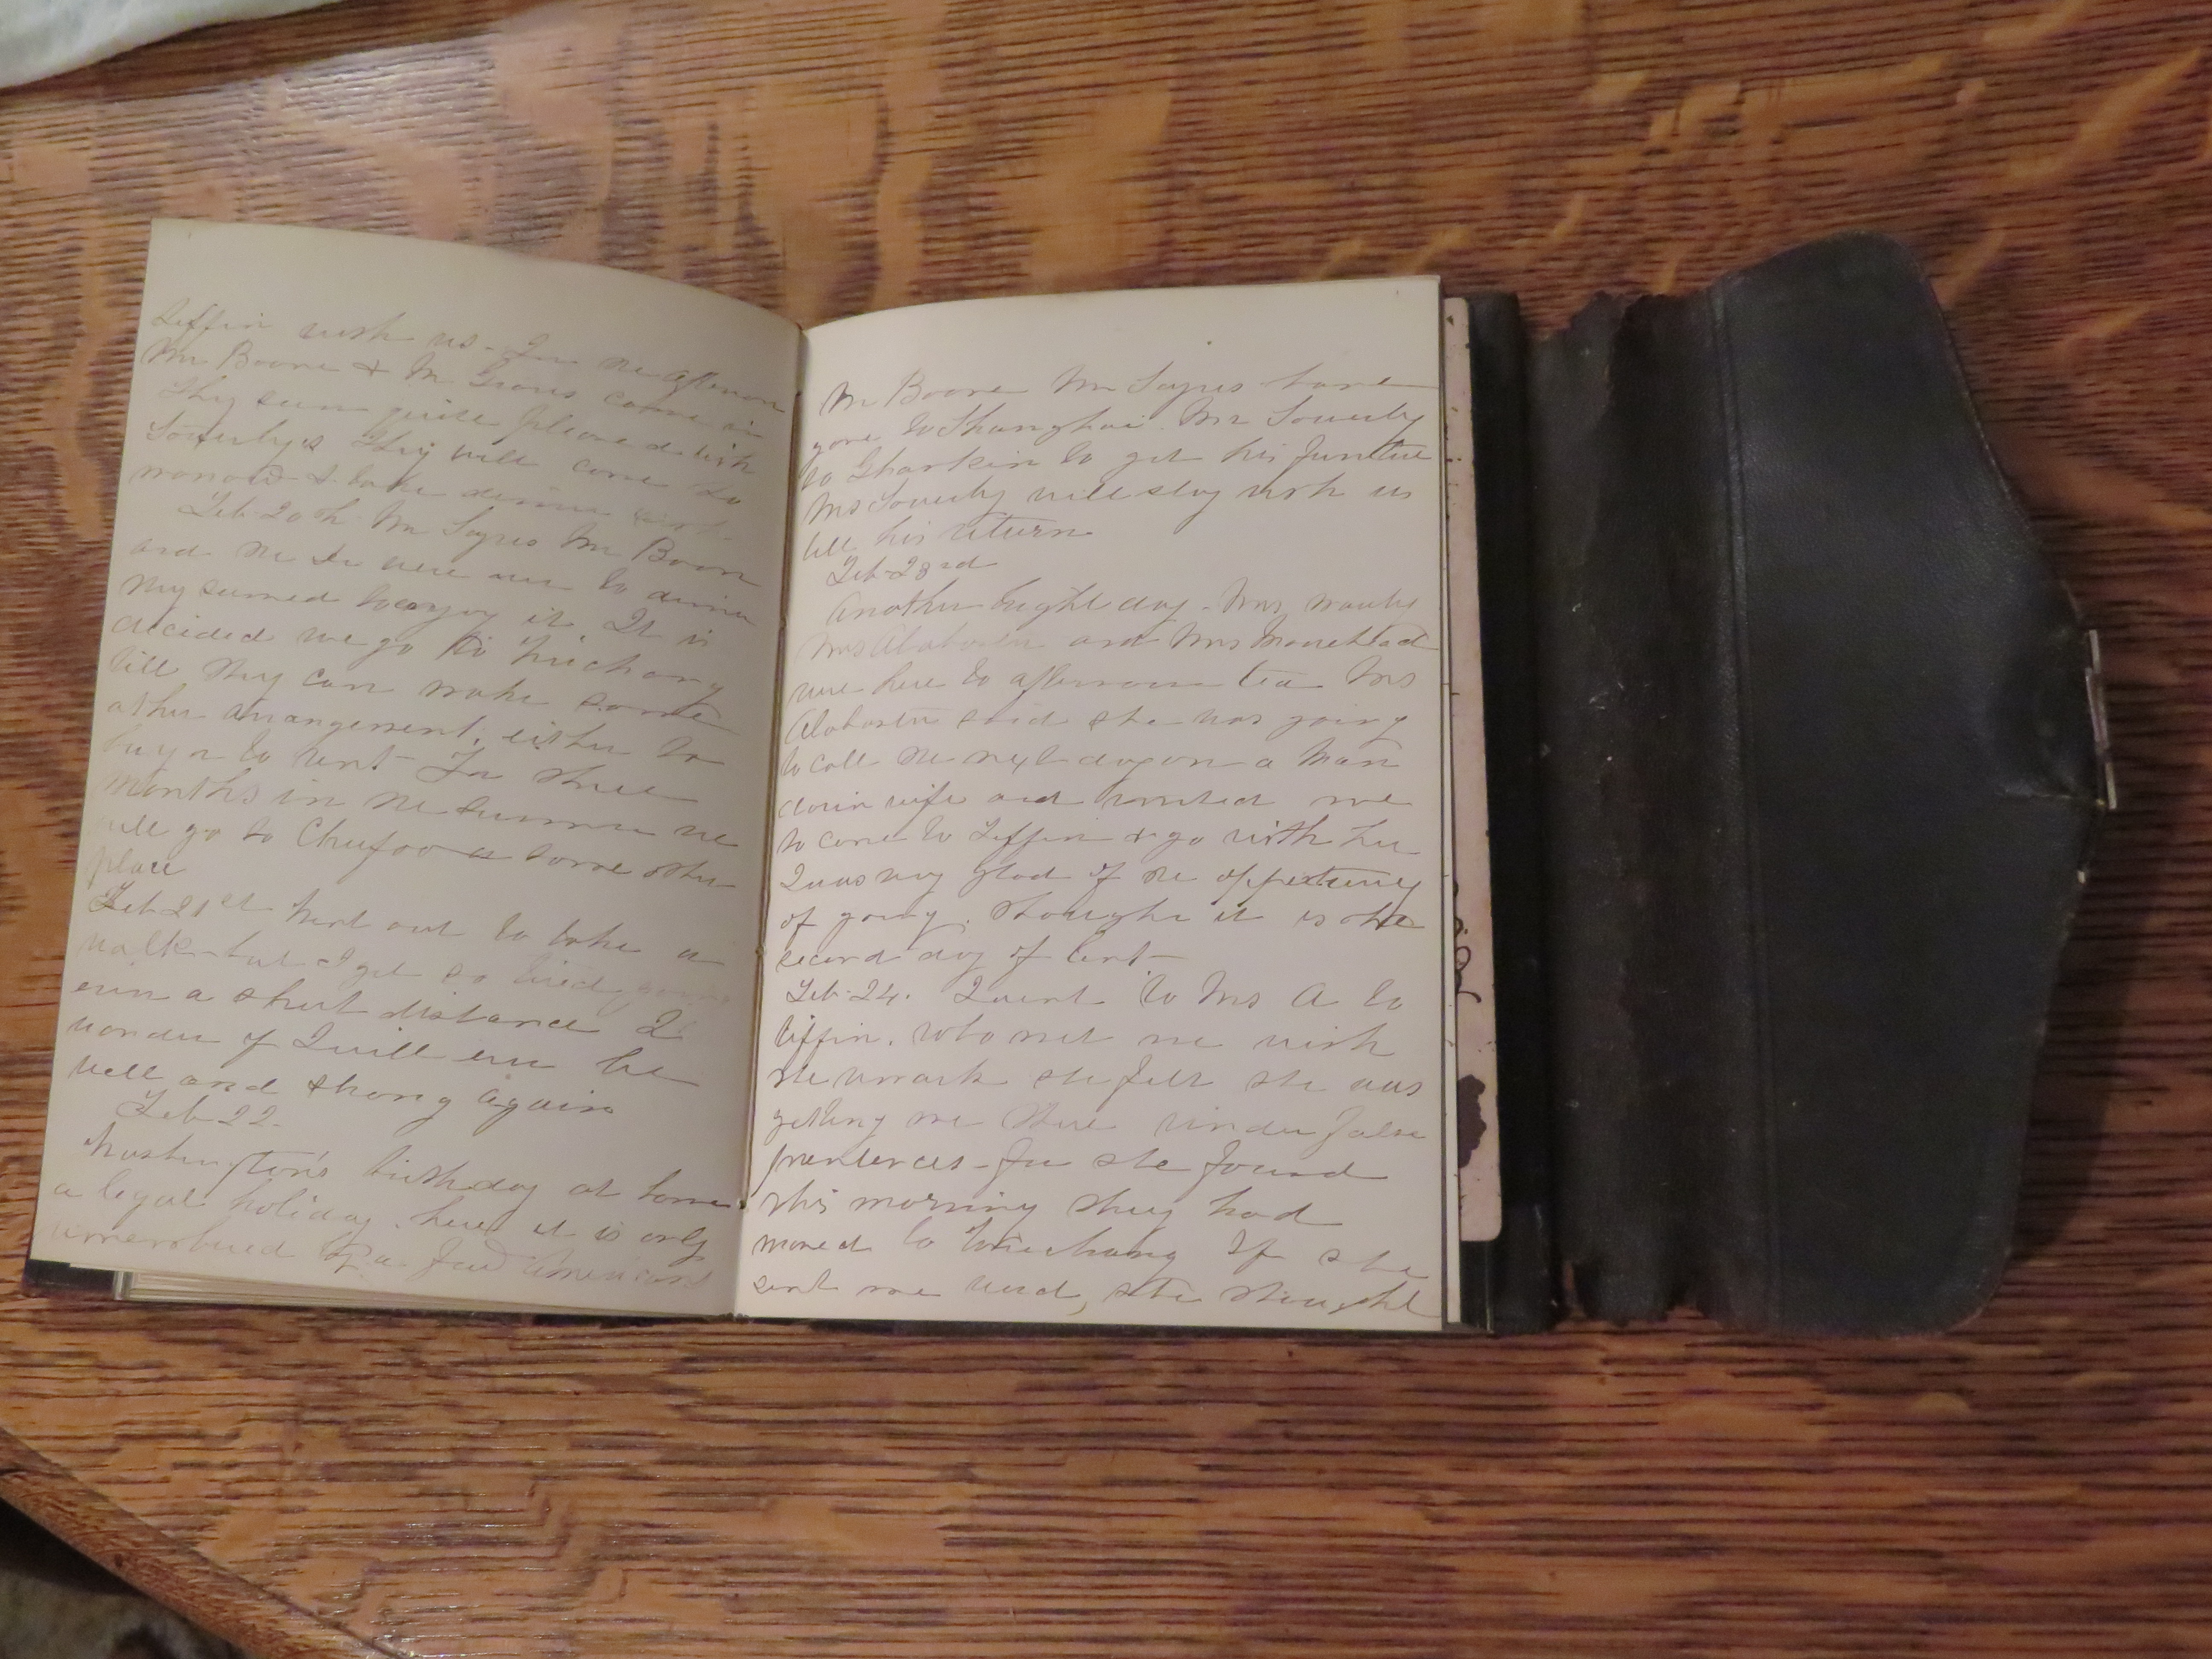 Tiffin with us - In the afternoon
Mr Boone & Mr Graves came in
They seem quite pleased with
Sowerby's They will come to
morrow & take dinner
Feb. 20th. Mr Sayres Mr Boone
and the Dr were over to dinner
they seemed to enjoy it It is
decided we go to Kiuchang
till they can make some
other arrangement, either to
buy or to rent - For three
months in the summer we
will go to Chefoo or some other
place
Feb 21st Went out to take a
walk - but I get so tired going
even a short distance I
wonder if I will ever be
well and strong again
Feb 22.
Washington's birthday at home
a legal holiday. here it is only
remembered by a few Americans
Mr Boone Mr Sayres have
gone to Shanghai. Mr Sowerby
to Shankin to get his furniture
Mrs Sowerby will stay with us
till his return
Feb 23rd
Another bright day - Mrs
Mrs Alabaster and Mrs
were here to afternoon tea Mrs
Alabaster said she was going
to call the next day on a Man
darin wife and wanted me
to come to Tiffin & go with her
I was very glad of the opportunity
of going. though it is the
second day of Lent -
Feb. 24. I went to Mrs A to
tiffin. who met me with
the remark she felt she was
getting me there under false
pretences - for she found
this morning they had
moved to If she
sent me word, she thought